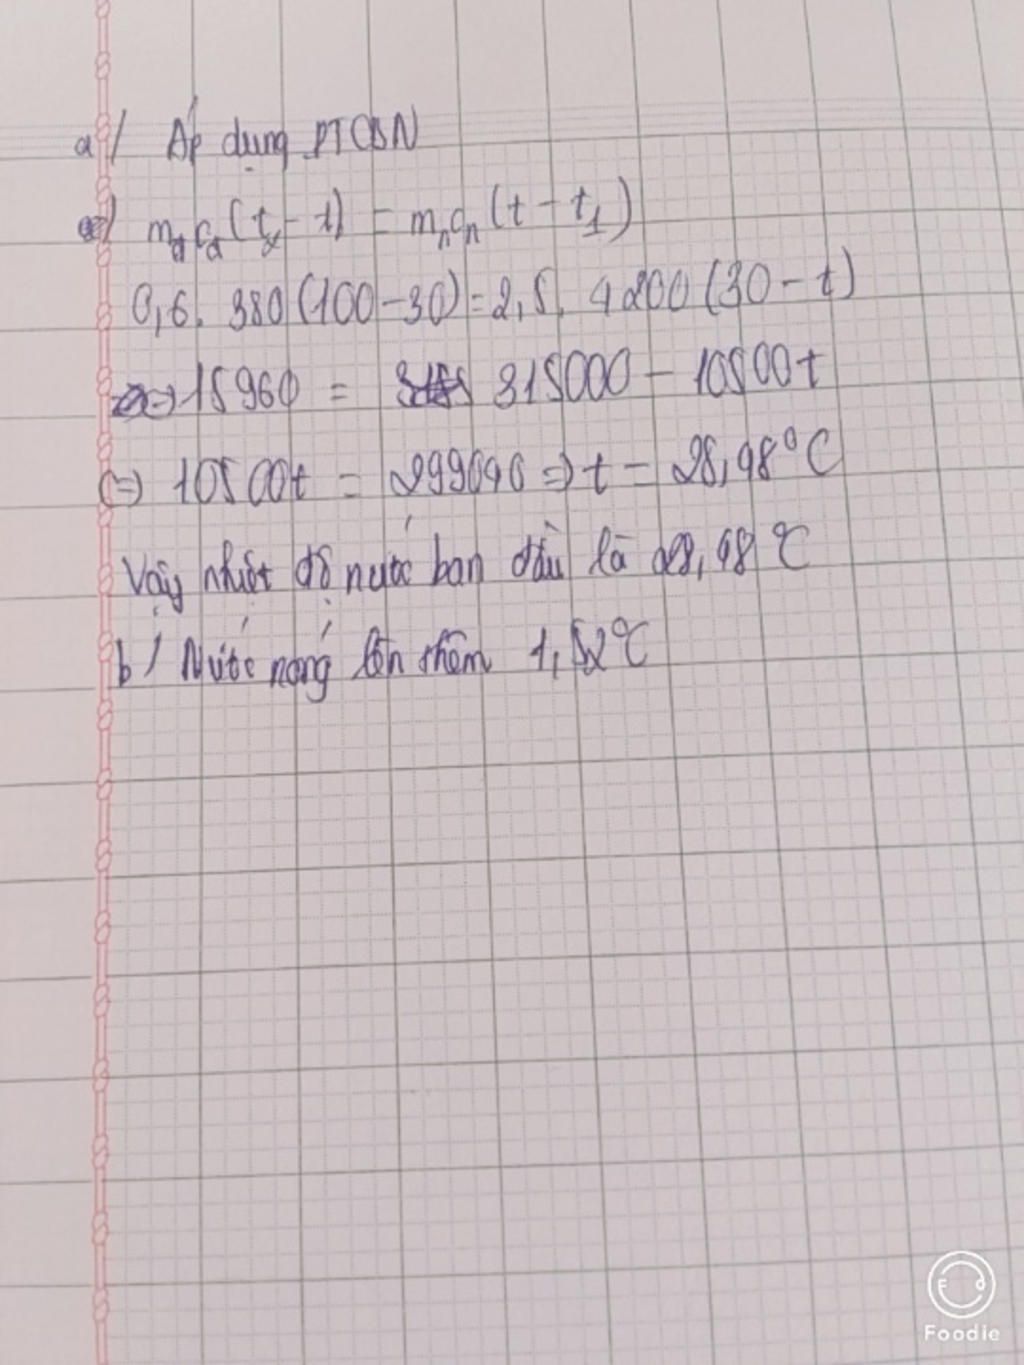 a/ Áp dụng PTCBN
m_đ c_đ (t_2 - t) = m_n c_n (t - t_1)
0,6. 380 (100 - 30) = 2,5. 4200 (30 - t)
15960 = 315000 - 10500t
(=) 10500t = 299040 => t = 28,48°C
Vậy nhiệt độ nước ban đầu là 28,48 °C
b/ Nước nóng lên thêm 1,52°C
Foodie